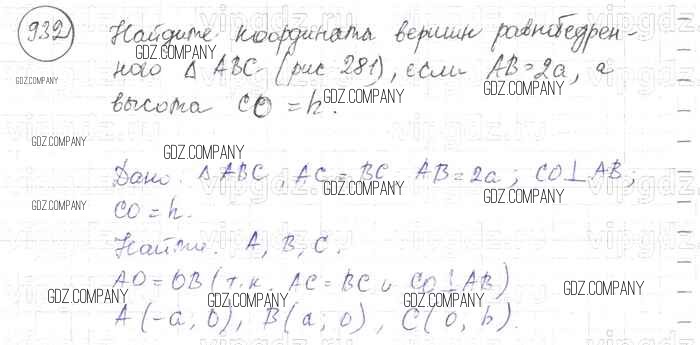 932 Найдите координаты вершин равнобедрен-
ного Δ ABC (рис 281), если AB=2a, а
высота CO = h.
Дано: Δ ABC, AC = BC AB=2a; CO⊥AB;
CO=h.
Найти: A, B, C.
AO=OB (т.к. AC=BC и CO⊥AB)
A(-a; 0), B(a; 0), C(0, h).
GDZ.COMPANY
GDZ.COMPANY
GDZ.COMPANY
GDZ.COMPANY
GDZ.COMPANY
GDZ.COMPANY
GDZ.COMPANY
GDZ.COMPANY
GDZ.COMPANY
GDZ.COMPANY
GDZ.COMPANY
GDZ.COMPANY